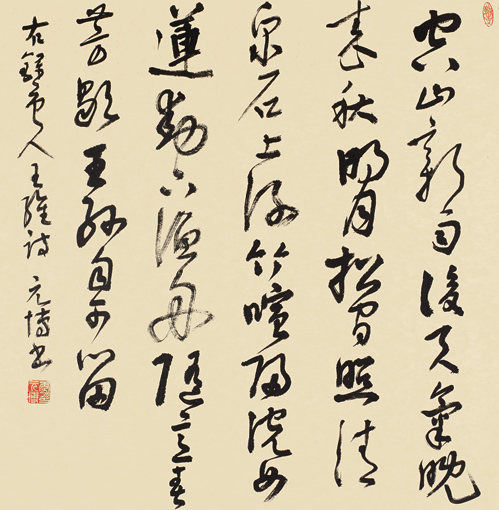 空山新雨後天氣晚
來秋明月松間照清
泉石上流竹喧歸浣女
蓮動下漁舟隨意春
芳歇王孫自可留
右錄唐人王維詩 元博書